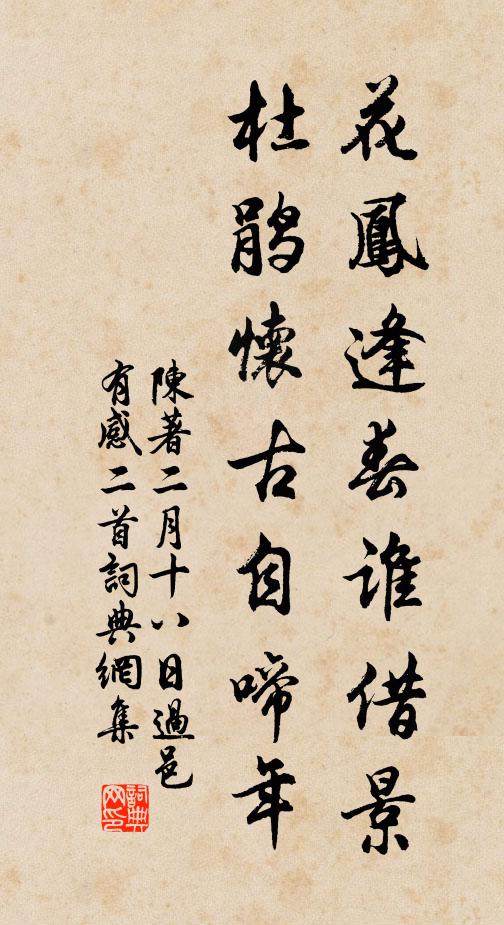 花鳳逢春誰借景
杜鵑懷古自啼年
陳著二月十八日過邑
有感二首詞典網集
詞典
网印